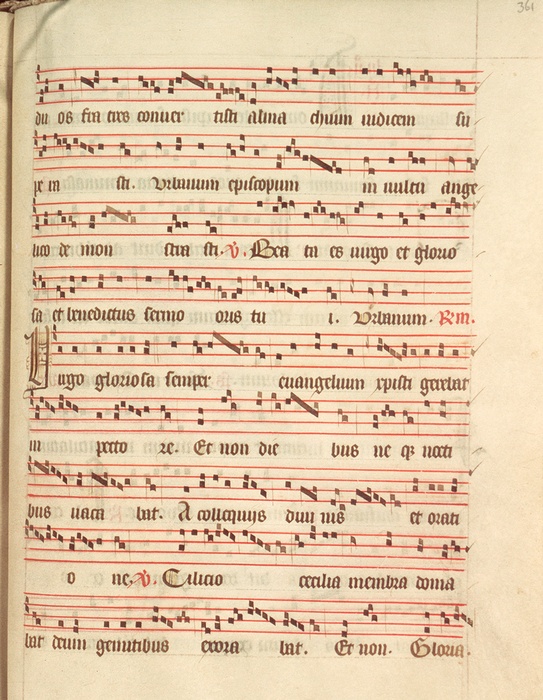 361
du os fra tres conuer tisti alma chium iudicem su
pe in sti. Vrbanum episcopum in uultu ange
lico de mon stra sti. V. Bea ta es uirgo et glorio
sa et benedictus sermo oris tu i. Vrbanum. Rm.
Uirgo gloriosa semper euangelium xpisti gerebat
in pecto re. Et non die bus ne qz nocti
bus uaca bat. A colloquijs diui nis et orati
o ne. V. Cilicio cecilia membra doma
bat deum gemitibus exora bat. Et non. Gloria.